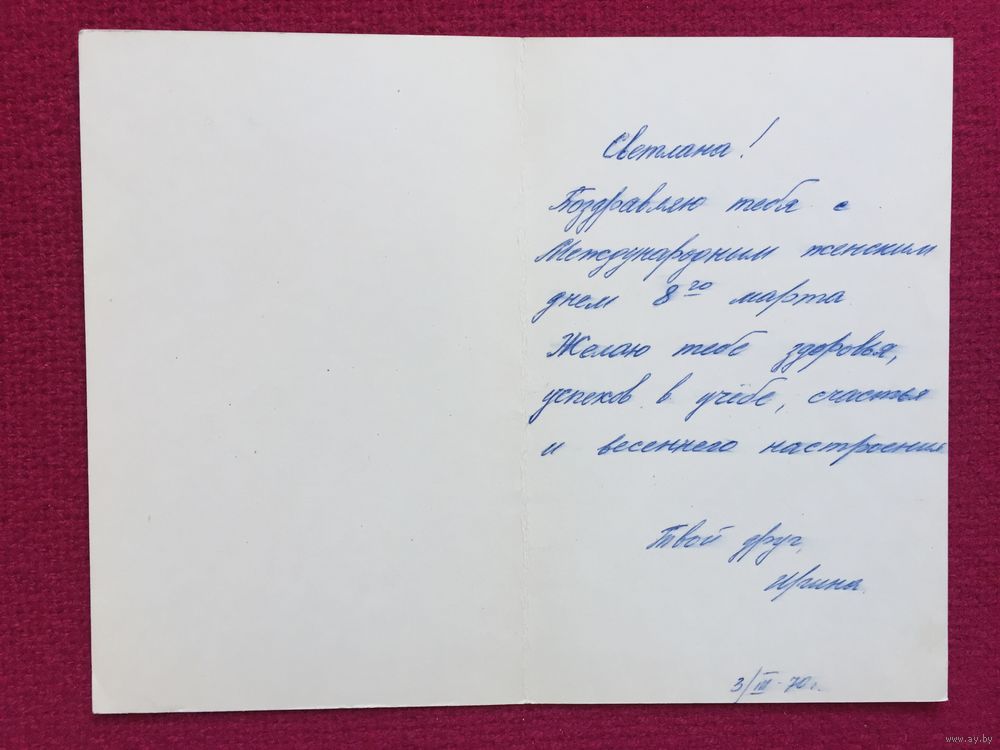 Светлана!
Поздравляю тебя с
Международным женским
днем 8го марта
Желаю тебе здоровья,
успехов в учёбе, счастья
и весеннего настроения
Твой друг,
Ирина.
3/III-70г.
www.ay.by